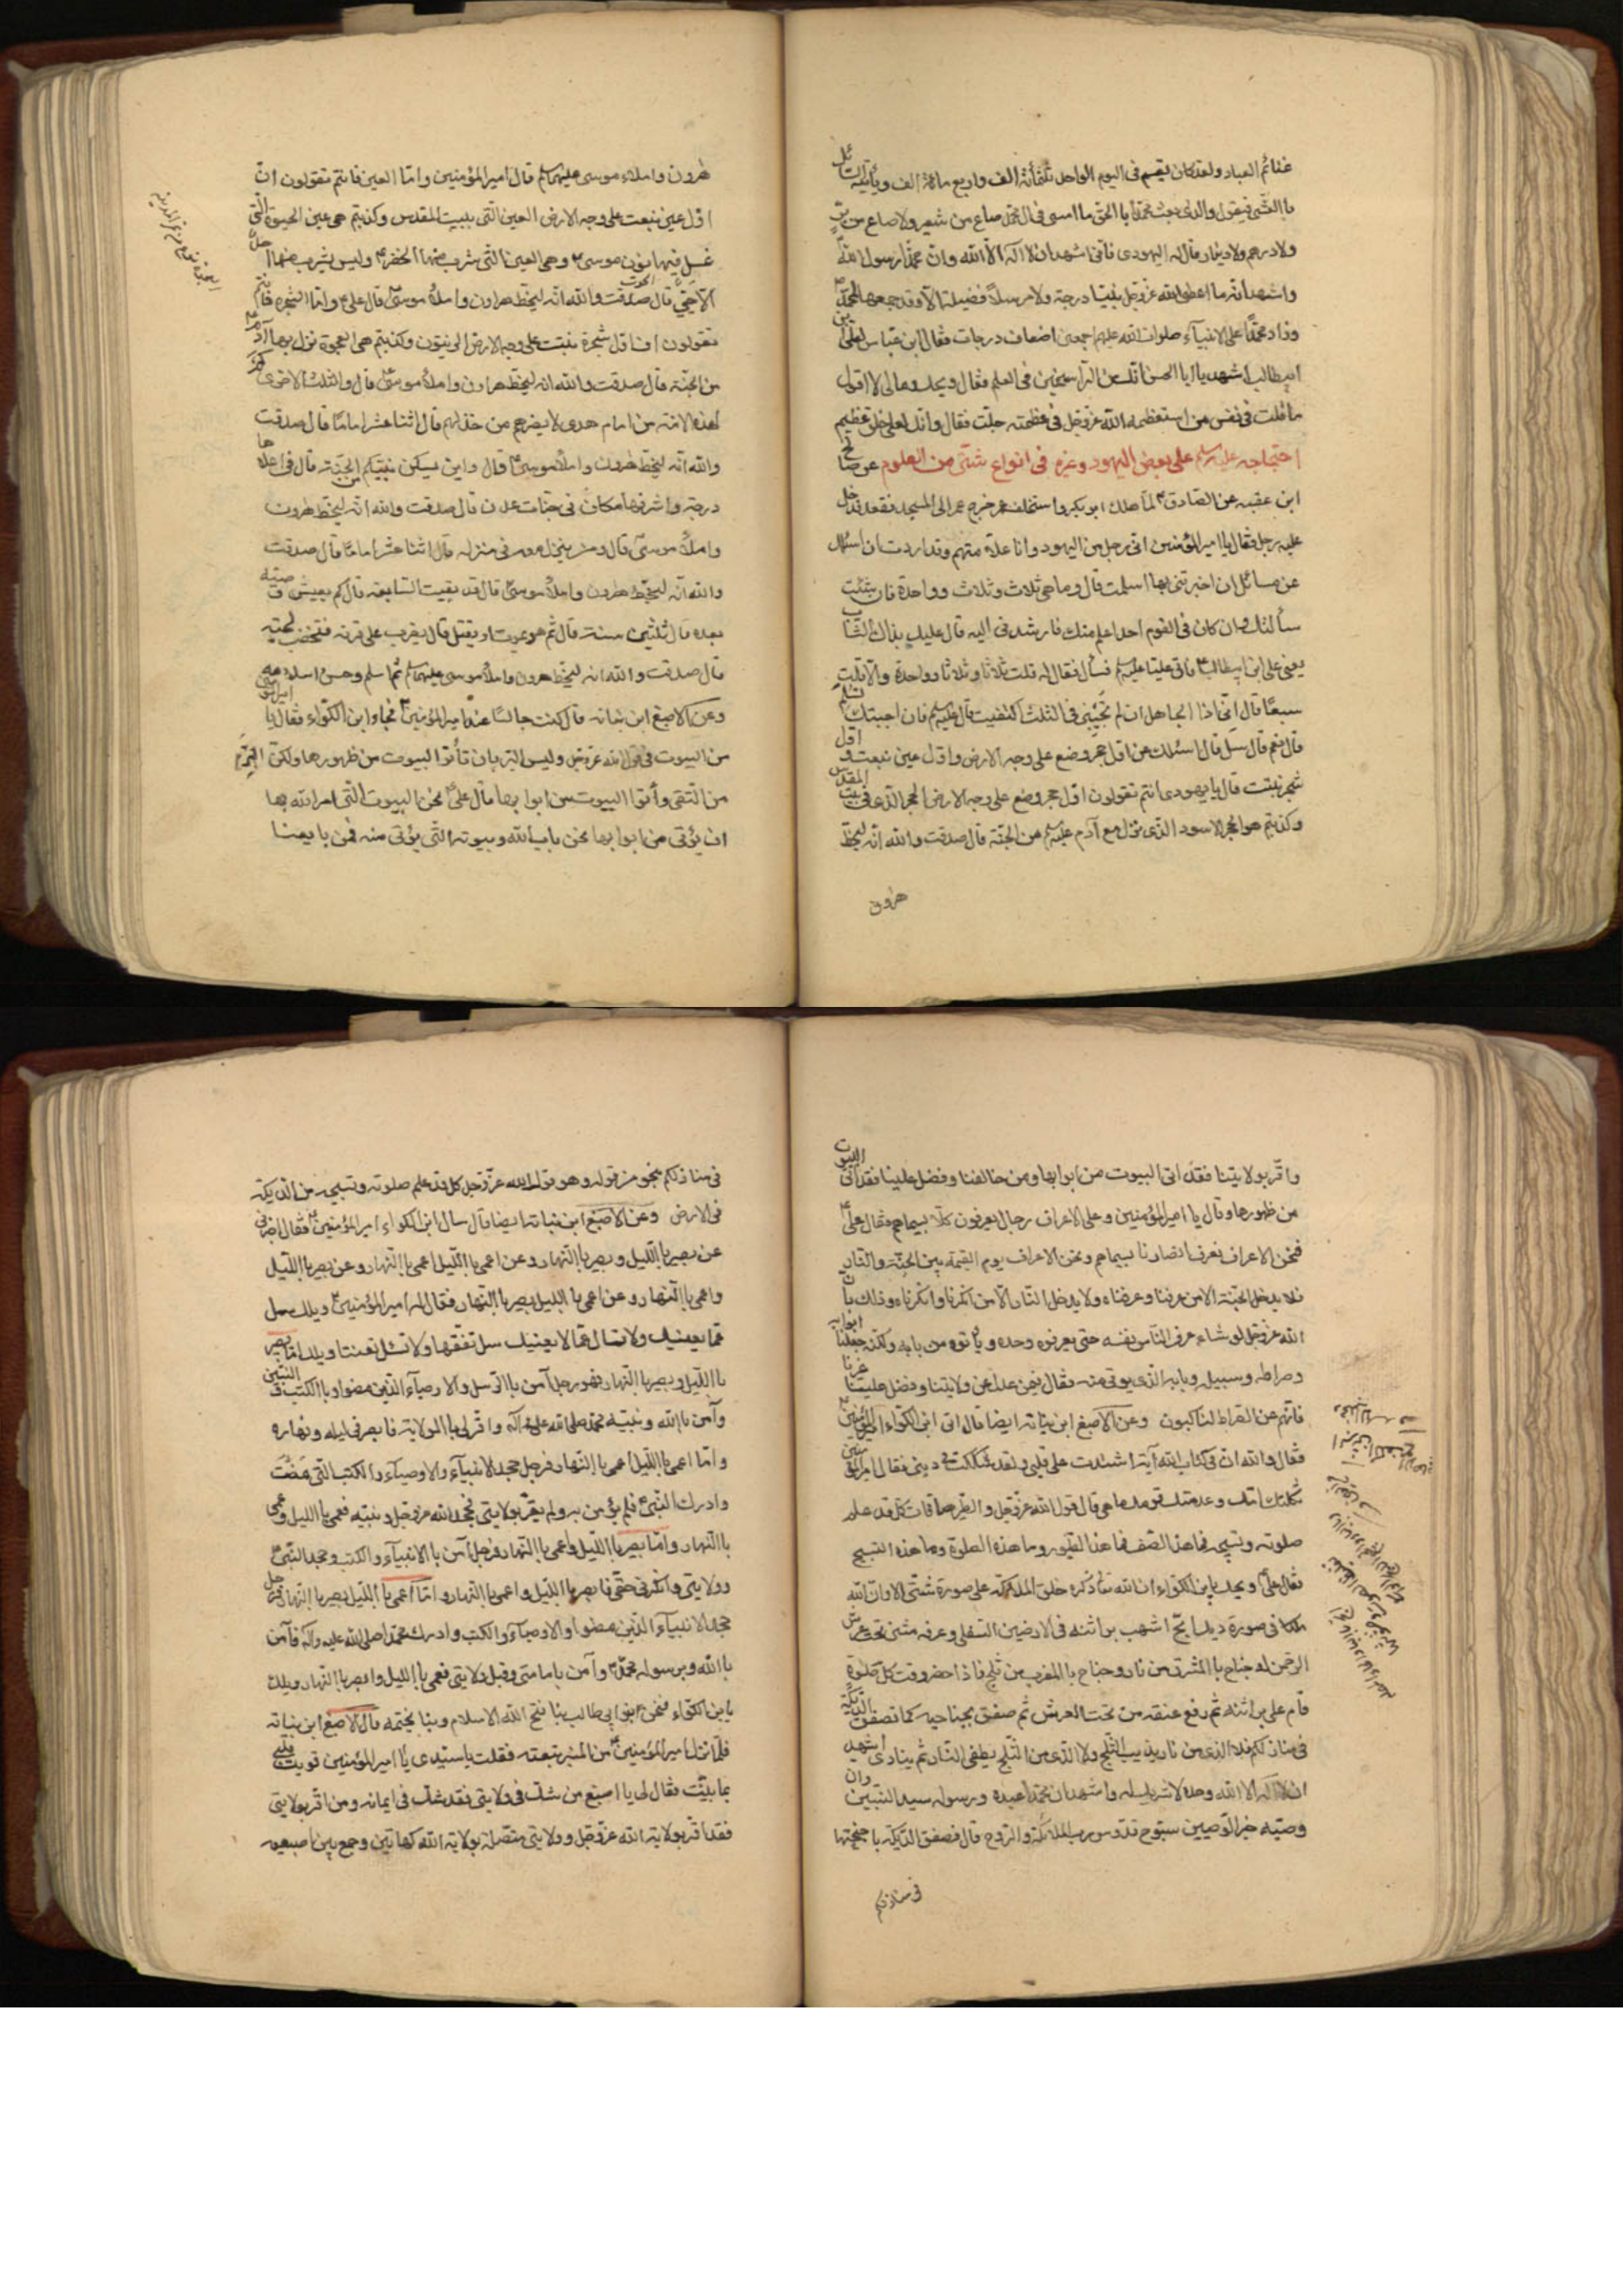 غنائم العباد ولقد كان يقسم فى اليوم الواحد ثلثمأته الف واربع مائة الف ويأتيه السائل
باالعشى فيقول والذى بعث محمدا باالحق ما امسى فى آل محمد صاع من شعير ولا صاع من بر
ولا درهم ولا دينار قال له اليهودى فانى اشهد ان لا اله الا الله وان محمدا رسول الله
واشهد انه ما اعطى الله عز وجل نبيا درجة ولا مرسلا فضيلة الا وقد جمعها لمحمد
وزاد محمدا على الانبيآء صلوات الله عليهم اجمعين اضعاف درجات فقال ابن عباس لعلى بن
ابيطالب اشهد يا ابا الحسن انك من الراسخين فى العلم فقال ويحك ومالى لا اقول
ما قلت فى نفس من استعظمه الله عز وجل فى عظمته جلت فقال وانك لعلى خلق عظيم
احتجاجه عليه سلم على بعض اليهود وغيره فى انواع شتى من العلوم عن صالح
ابن عقبه عن الصادق لما هلك ابو بكر واستخلف عمر خرج عمر الى المسجد فقعد فدخل
عليه رجل فقال يا امير المؤمنين انى رجل من اليهود وانا علامتهم وقد اردت ان اسئلك
عن مسائل ان اخبرتنى بها اسلمت قال وما هى ثلاث وثلاث وواحدة فان شئت
سألتك وان كان فى القوم احد اعلم منك فارشدنى اليه قال عليك بذاك الشاب
يعنى على ابن ابيطالب فاتى عليا عليه سلم فسأل فقال له قلت ثلاثا وثلاثا وواحدة والا قلت
سبعا قال انى اذا لجاهل ان لم تجبنى فى الثلث اكتفيت قال عليه سلم فان اجبتك تسلم
قال نعم قال سل قال اسئلك عن اول حجر وضع على وجه الارض واول عين نبعت واول
شجر نبتت قال يا يهودى انتم تقولون اول حجر وضع على وجه الارض الحجر الذى فى بيت المقدس
وكذبتم هو الحجر الاسود الذى نزل مع آدم عليه سلم من الجنة قال صدقت والله انه لبخط
هرون
هرون واملاء موسى عليهما سلم قال امير المؤمنين واما العين فانتم تقولون ان
اول عين نبعت على وجه الارض العين التى ببيت المقدس وكذبتم هى عين الحيوة التى
غسل فيها نون موسى وهى العين التى شرب منها الخضر وليس يشرب منها احد
الا حيى قال صدقت والله انه لبخط هارون واملاء موسى قال على واما الشجره فانتم
تقولون ان اول شجرة نبتت على وجه الارض الزيتون وكذبتم هى العجوة نزل بها آدم
من الجنة قال صدقت والله انه لبخط هارون واملاء موسى قال والثلث الاخرى كم
لهذه الامة من امام هدى لا يضرهم من خذلهم قال اثنا عشر اماما قال صدقت
والله انه لبخط هرون واملاء موسى قال واين يسكن نبيكم من الجنة قال فى اعلاها
درجة واشرفها مكانا فى جنات عدن قال صدقت والله انه لبخط هرون
واملاء موسى قال ومن ينزل معه فى منزله قال اثنا عشر اماما قال صدقت
والله انه لبخط هرون واملاء موسى قال قد بقيت السابعة قال كم يعيش وصيه
بعده قال ثلثين سنة قال ثم هو يموت او يقتل قال يضرب على قرنه فتخضب لحيته
قال صدقت والله انه لبخط هرون واملاء موسى عليهما سلم ثم اسلم وحسن اسلامه
وعن الاصبغ ابن نباته قال كنت جالسا عند امير المؤمنين فجاء ابن الكواء فقال يا امير المؤمنين
من البيوت فى قول الله عز وجل وليس البر بان تأتوا البيوت من ظهورها ولكن البر
من اتقى وأتوا البيوت من ابوابها قال على نحن البيوت التى امر الله بها
ان يؤتى من ابوابها نحن باب الله وبيوته التى يؤتى منه فمن بايعنا
واقر بولايتنا فقد اتى البيوت من ابوابها ومن خالفنا وفضل علينا فقد اتى البيوت
من ظهورها وقال يا امير المؤمنين وعلى الاعراف رجال يعرفون كلا بسيماهم فقال على
فنحن الاعراف نعرف انصارنا بسيماهم ونحن الاعراف يوم القيمة بين الجنة والنار
فلا يدخل الجنة الا من عرفنا وعرفناه ولا يدخل النار الا من انكرنا وانكرناه وذلك بان
الله عز وجل لو شاء عرف الناس نفسه حتى يعرفوه وحده ويأتوه من بابه ولكنه جعلنا ابوابه
وصراطه وسبيله وبابه الذى يؤتى منه فقال فمن عدل عن ولايتنا وفضل علينا غيرنا
فانهم عن الصراط لناكبون وعن الاصبغ ابن نباته ايضا قال اتى ابن الكواء امير المؤمنين
فقال والله ان فى كتاب الله آية اشتدت على قلبى ولقد شككت فى دينى فقال امير المؤمنين
ثكلتك امك وعدمتك قومك ما هى قال قول الله عز وجل والطير صافات كل قد علم
صلوته وتسبيحه فما هذا الصف فما هذا الطيور وما هذه الصلوة وما هذه التسبيح
فقال على ويحك يابن الكواء ان الله تعالى ذكره خلق الملائكة على صورة شتى الا وان لله
ملكا فى صورة ديك ابح اشهب براثنه فى الارضين السفلى وعرفه مثنى تحت عرش
الرحمن له جناح باالمشرق من نار وجناح باالمغرب من ثلج فاذا حضر وقت كل صلوة
قام على براثنه ثم رفع عنقه من تحت العرش ثم صفق بجناحيه كما تصفق الديكة
فى منازلكم فلا الذى من نار يذيب الثلج ولا الذى من الثلج يطفى النار ثم ينادى اشهد
ان لا اله الا الله وحده لا شريك له واشهد ان محمدا عبده ورسوله سيد النبيين وان
وصيه خير الوصيين سبوح قدوس رب الملائكة والروح قال فصفق الديكة باجنحتها
فى منازلكم
فى منازلكم بنحو من قوله وهو قول الله عز وجل كل قد علم صلوته وتسبيحه من الديكة
فى الارض وعن الاصبغ ابن نباته ايضا قال سال ابن الكواء امير المؤمنين فقال اخبرنى
عن بصير باالليل وبصير باالنهار وعن اعمى باالليل اعمى باالنهار وعن بصير باالليل
واعمى باالنهار وعن اعمى باالليل بصير باالنهار فقال له امير المؤمنين ويلك سل
عما يعنيك ولا تسال عما لا يعنيك سل تفقها ولا تسئل تعنتا ويلك اما بصير
باالليل وبصير باالنهار فهو رجل آمن باالرسل والاوصيآء الذين مضوا وباالكتب والنبيين
وآمن باالله ونبيه محمد صلى الله عليه وآله واقر لى باالولاية فابصر فى ليله ونهاره
واما اعمى باالليل اعمى باالنهار فرجل جحد الانبيآء والاوصيآء والكتب التى مضت
وادرك النبى فلم يؤمن به ولم يقر بولايتى فجحد الله عز وجل ونبيه فعمى باالليل وعمى
باالنهار واما بصير باالليل واعمى باالنهار فرجل آمن باالانبيآء والكتب وجحد النبى
وولايتى وانكرنى حقى فابصر باالليل واعمى باالنهار واما اعمى باالليل بصير باالنهار فرجل
جحد الانبيآء الذين مضوا والاوصيآء والكتب وادرك محمدا صلى الله عليه وآله فآمن
باالله وبرسوله محمد وآمن بامامتى وقبل ولايتى فعمى باالليل وابصر باالنهار ويلك
يابن الكواء فنحن بنو ابى طالب بنا فتح الله الاسلام وبنا يختمه قال الاصبغ ابن نباته
فلما نزل امير المؤمنين من المنبر تبعته فقلت يا سيدى يا امير المؤمنين قويت قلبى
بما بينت فقال لى يا اصبغ من شك فى ولايتى فقد شك فى ايمانه ومن اقر بولايتى
فقد اقر بولاية الله عز وجل وولايتى متصلة بولاية الله كهاتين وجمع بين اصبعيه